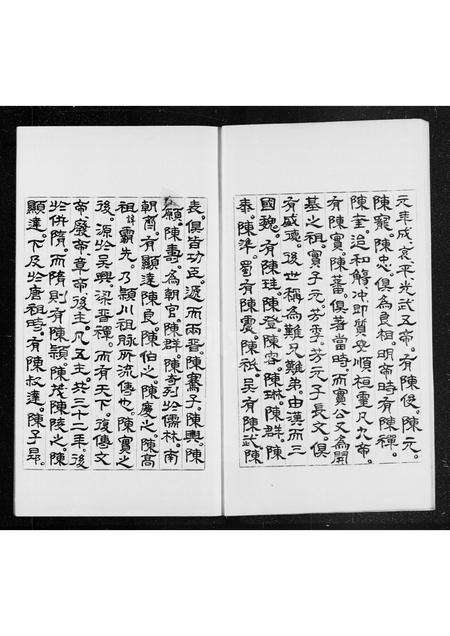 元年成哀平光武五帝。有陳俊。陳元。
陳寵。陳忠。俱為良相。明帝時。有陳禪。
陳奎。追和觴冲即質安順桓靈凡九帝。
有陳寔。陳蕃。俱著當時。而寔公又為開
基之祖。寔子元方季方。元方子長文。俱
有盛德。後世稱為難兄難弟。由漢而三
國。魏。有陳珪。陳登。陳容。陳琳。陳群。陳
泰。陳準。蜀有陳震。陳祇。吳有陳武。陳
表。俱皆功臣。遞而兩晉。陳騫子。陳輿。陳
願。陳壽。為朝官。陳群。陳奇。列於儒林。南
朝齊。有顯達。陳良。陳伯之。陳慶之。陳高
祖諱霸先。乃潁川祖脉所流傳也。陳寔之
後。源於吳興。梁晉禪。而有天下。復傳文
帝。廢帝。章帝。後主。凡五主。共三十二年。後
於併隋。而隋則有陳穎。陳茂。陳陵之。陳
顯達。下及於唐祖時。有陳叔達。陳子昂。